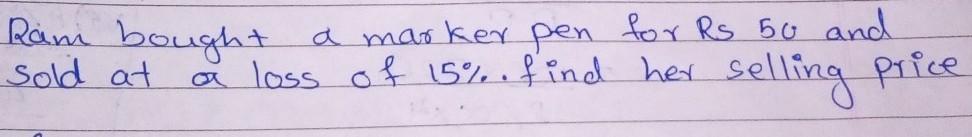 Ram bought a marker pen for Rs 50 and
sold at a loss of 15%. find her selling price